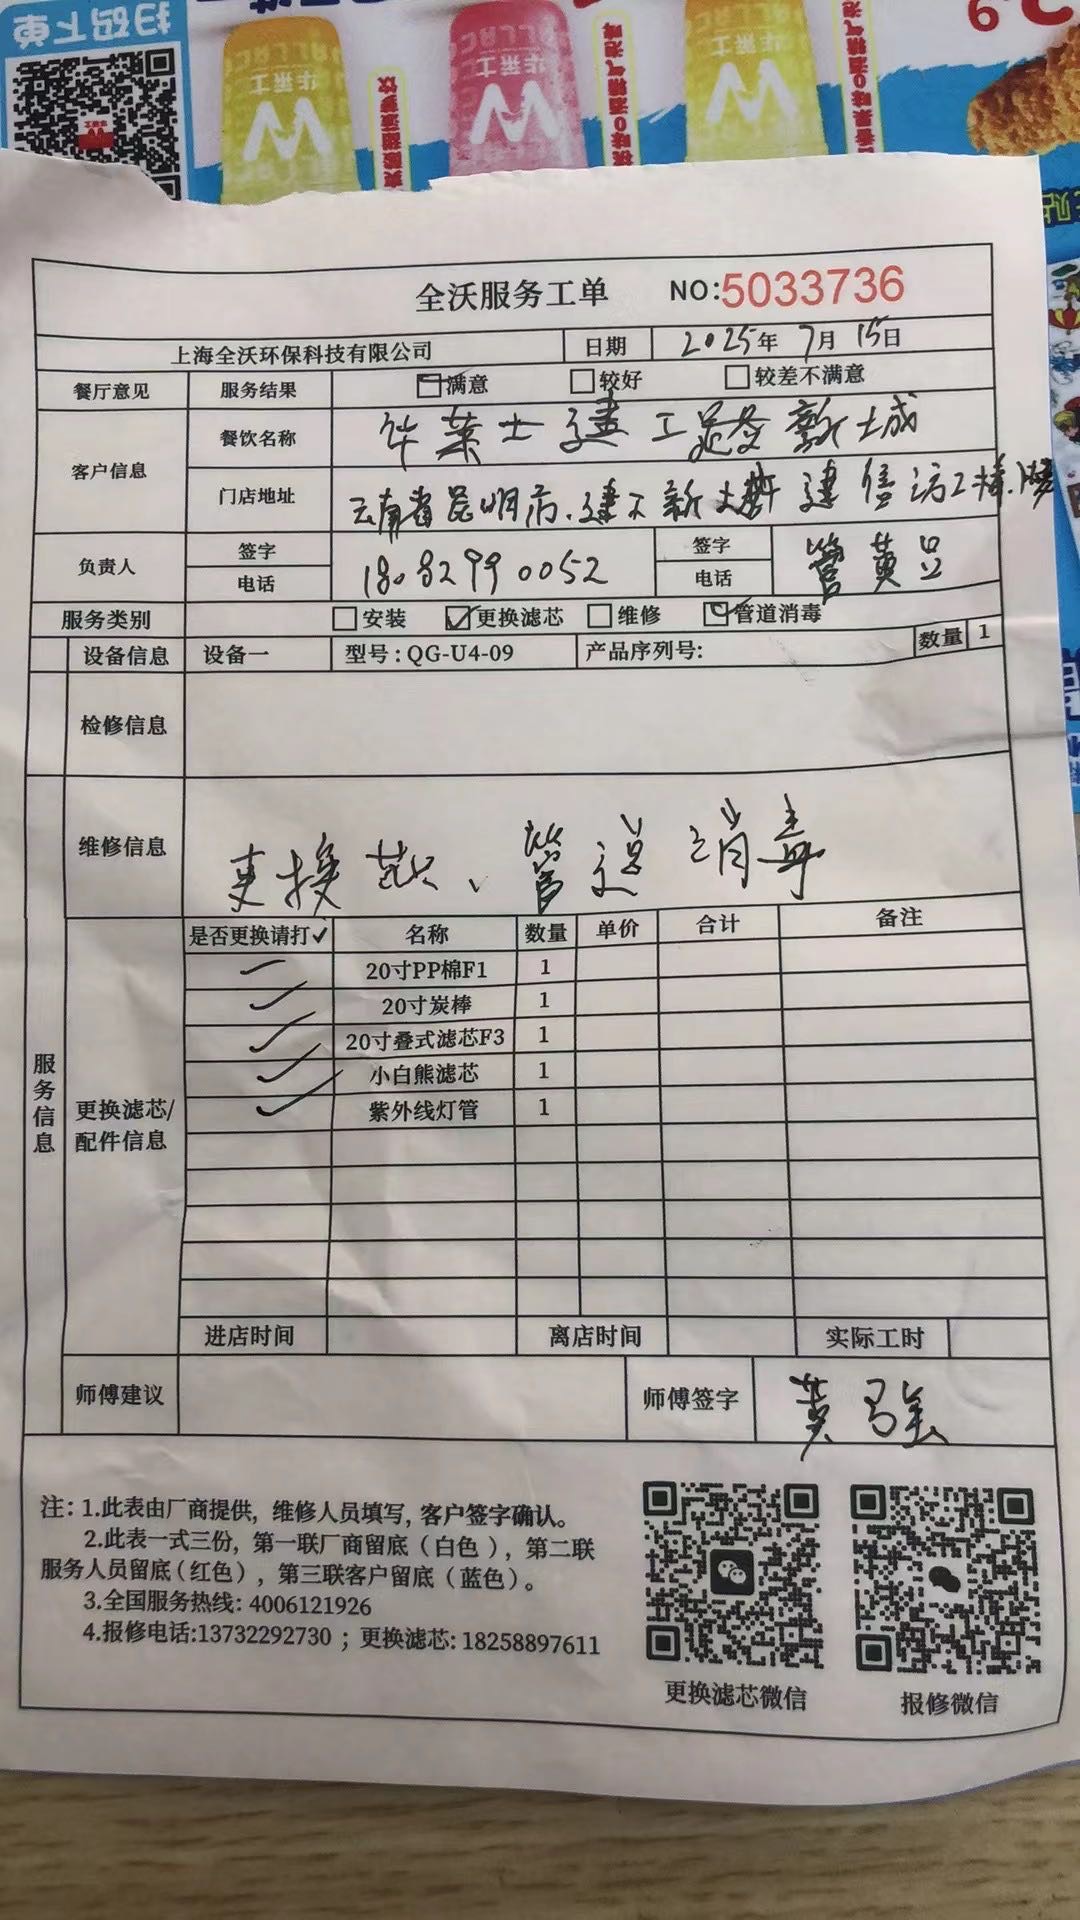 扫码下更
华莱士
华莱士
华莱士
全沃服务工单 NO:5033736
上海全沃环保科技有限公司 日期 2025年 7月 15日
餐厅意见 服务结果 满意 较好 较差不满意
客户信息 餐饮名称 华莱士建工 新城
门店地址 云南省昆明市 建工新城
负责人 签字 电话 18082990052 签字 电话
服务类别 安装 更换滤芯 维修 管道消毒
设备信息 设备一 型号:QG-U4-09 产品序列号: 数量 1
检修信息
维修信息 更换芯、管道消毒
服务信息
更换滤芯/配件信息
是否更换请打✓ 名称 数量 单价 合计 备注
✓ 20寸PP棉F1 1
✓ 20寸炭棒 1
✓ 20寸叠式滤芯F3 1
✓ 小白熊滤芯 1
✓ 紫外线灯管 1
进店时间 离店时间 实际工时
师傅建议 师傅签字
注: 1.此表由厂商提供, 维修人员填写, 客户签字确认。
2.此表一式三份, 第一联厂商留底(白色), 第二联
服务人员留底(红色), 第三联客户留底(蓝色)。
3.全国服务热线: 4006121926
4.报修电话:13732292730 ; 更换滤芯: 18258897611
更换滤芯微信 报修微信